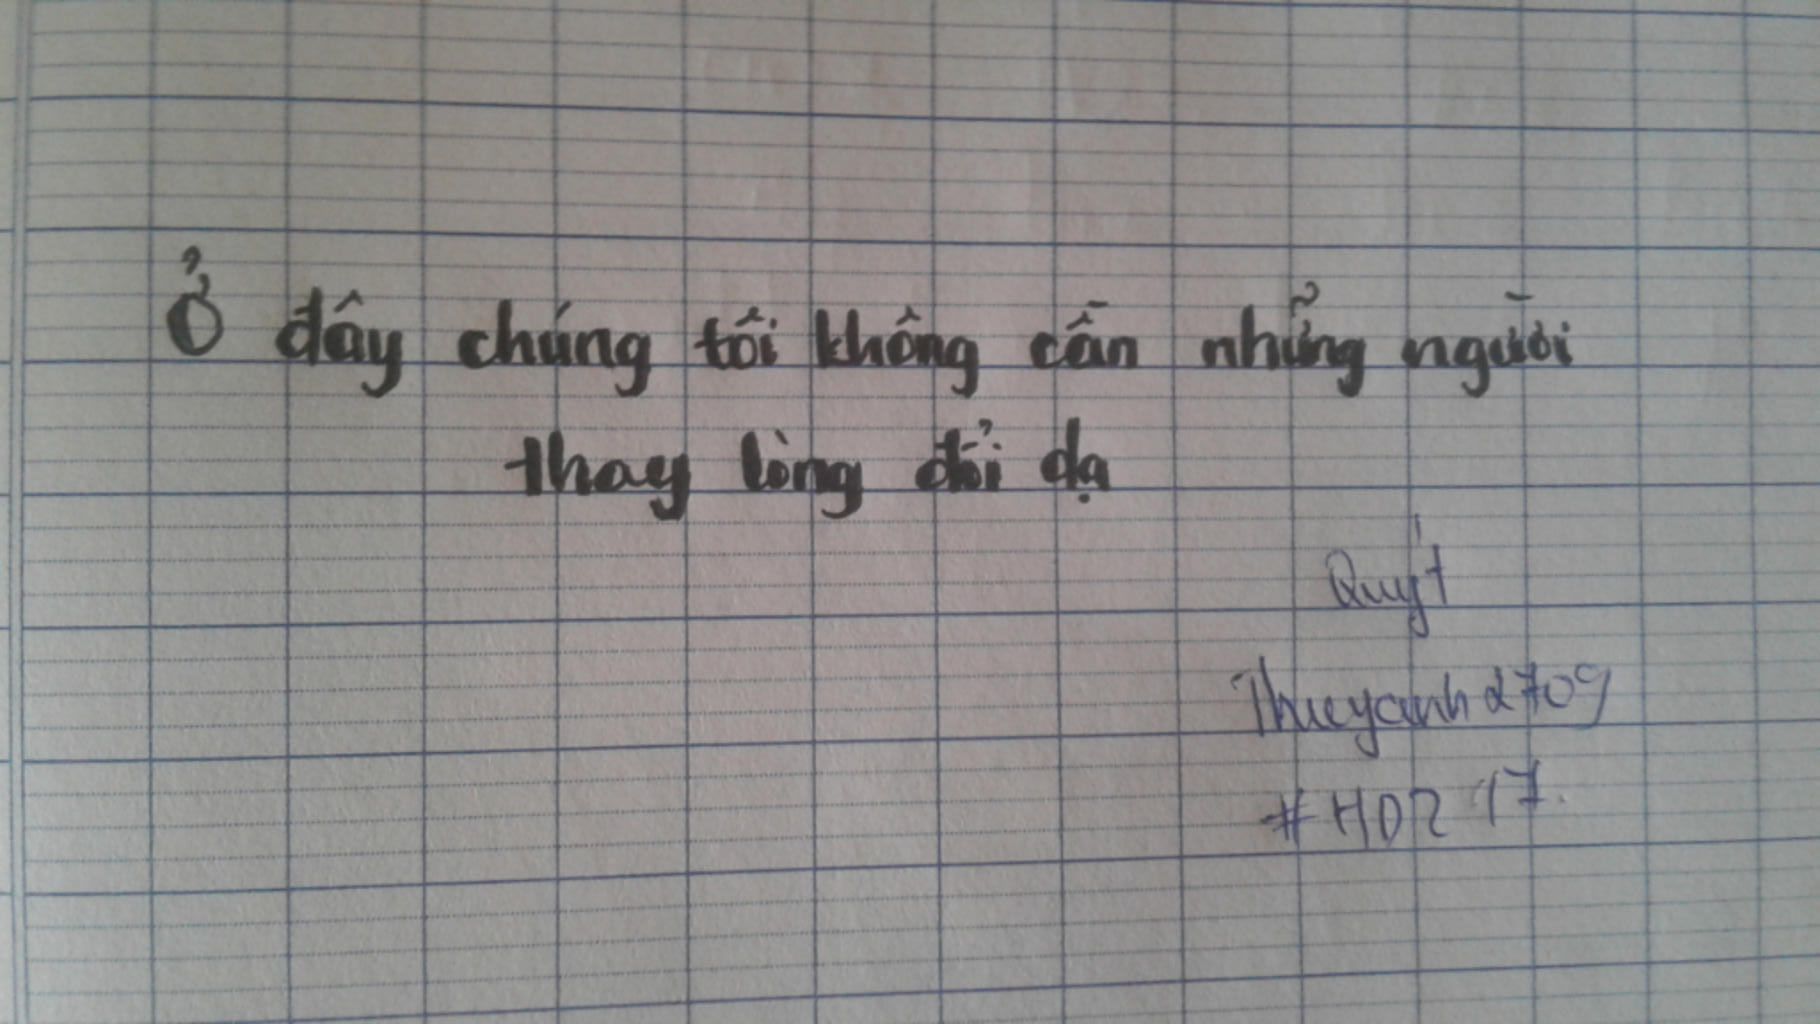 Ở đây chúng tôi không cần những người
thay lòng đổi dạ
Quýt
Thueyanh2709
#HDR 17